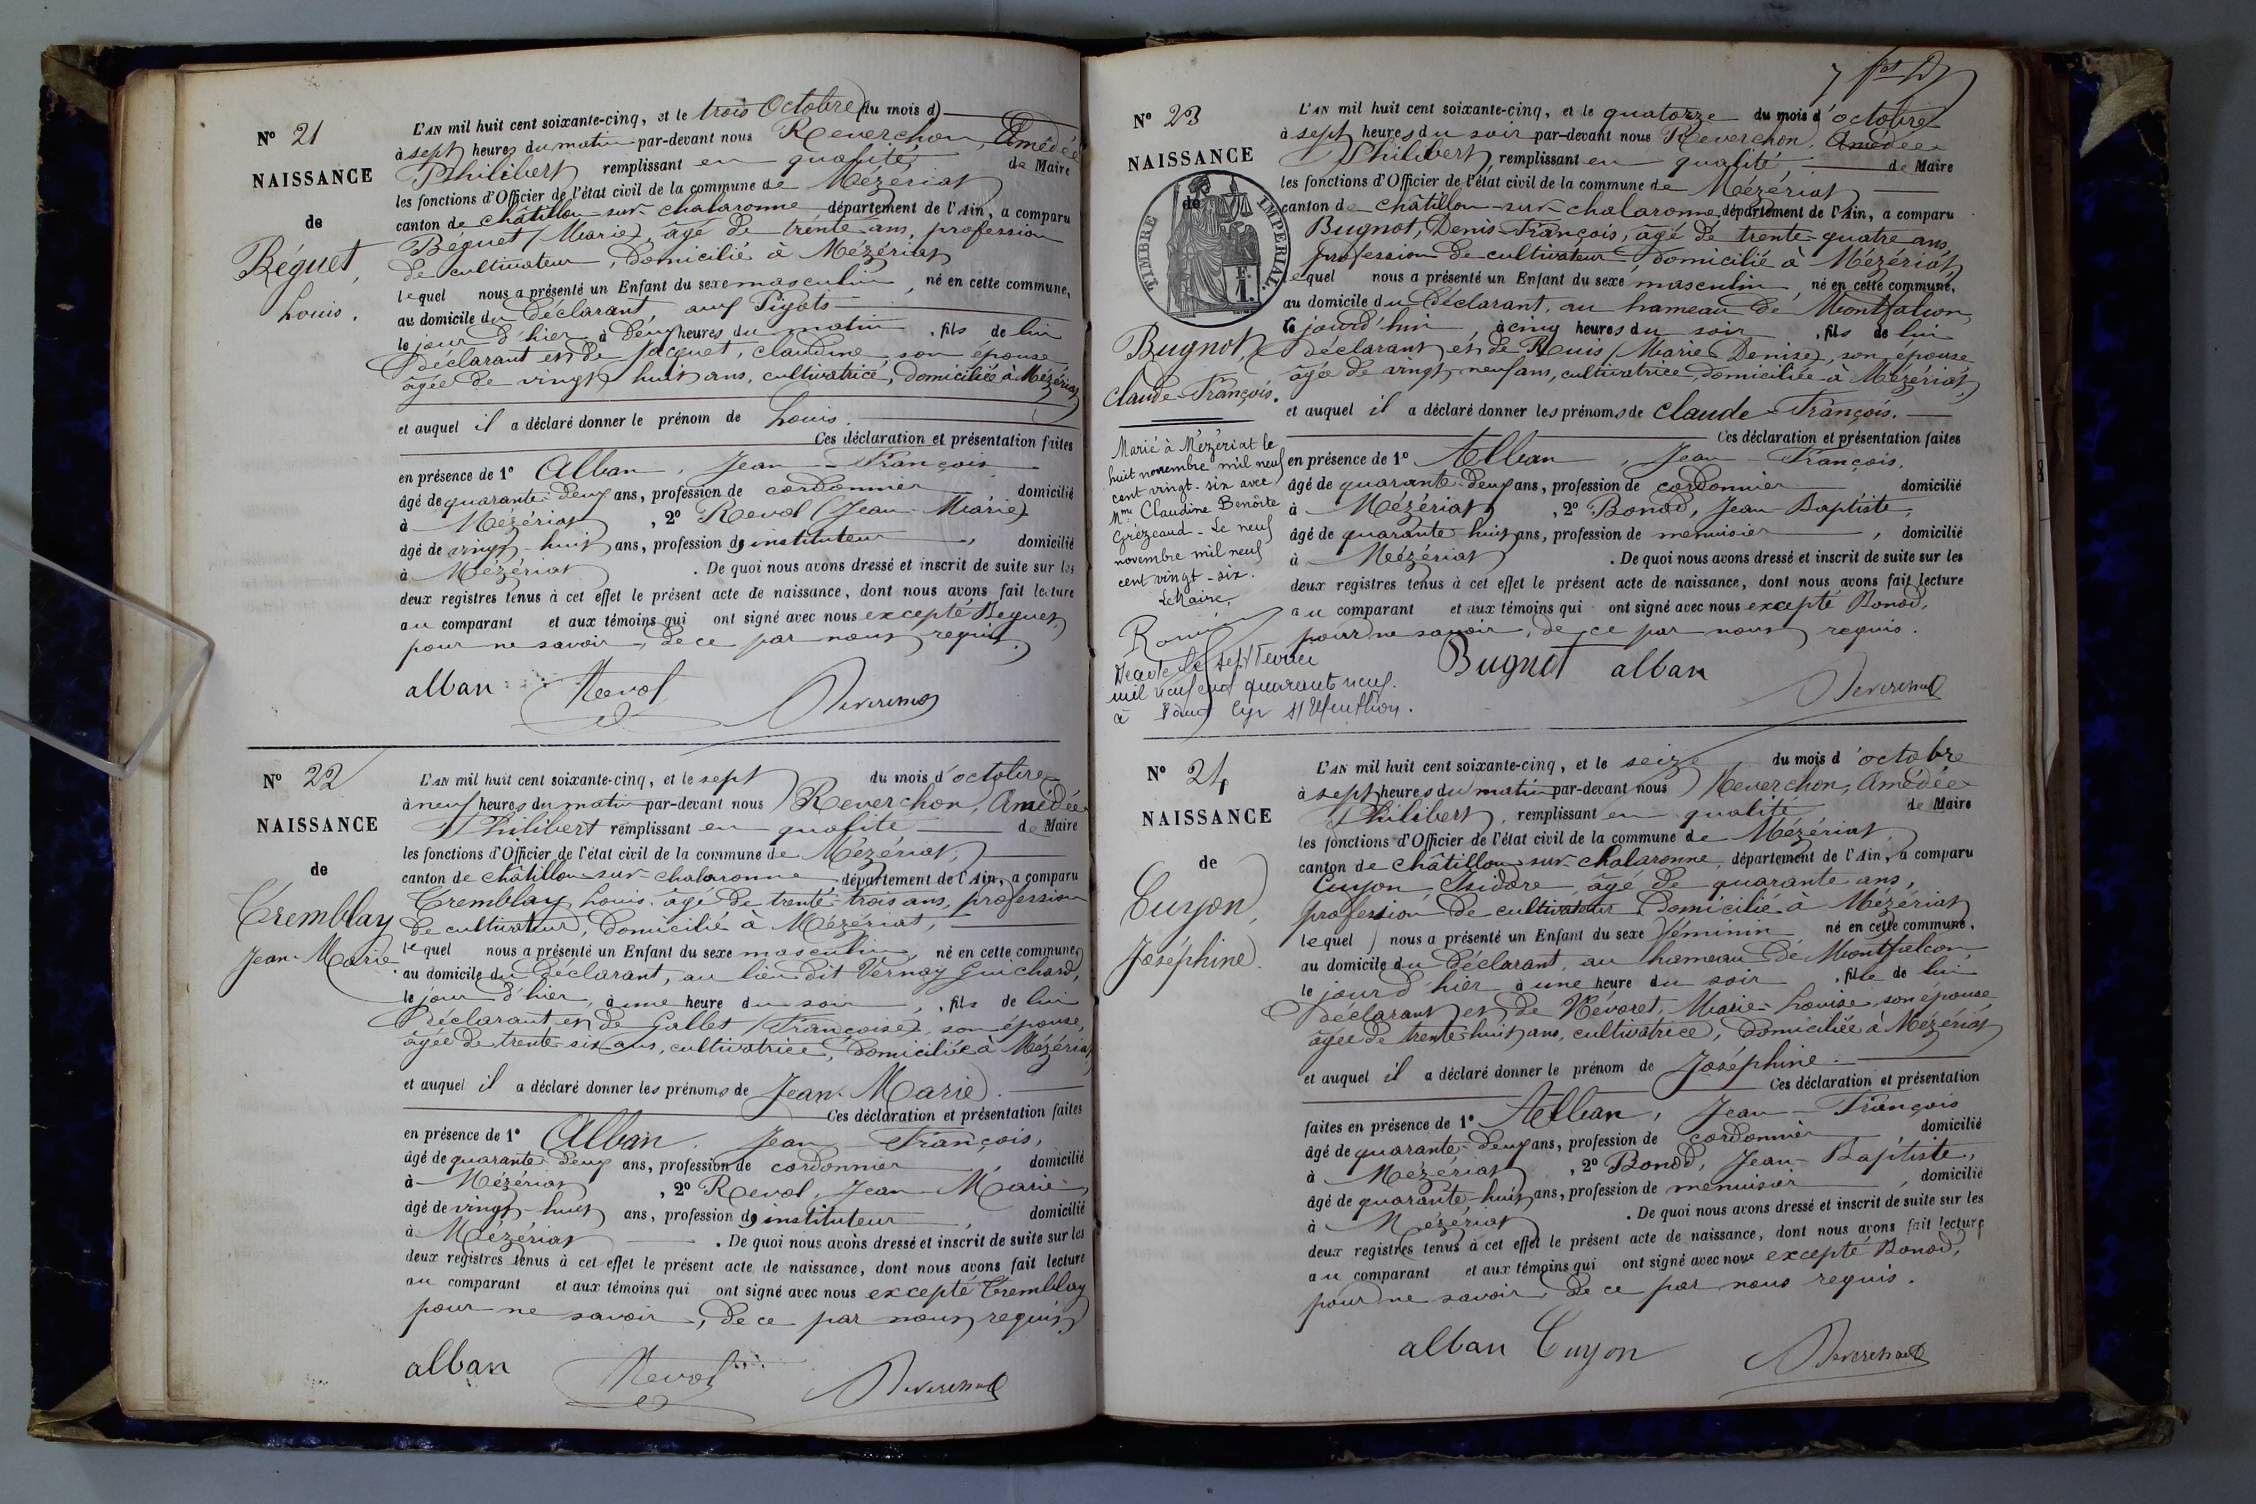 N° 21
NAISSANCE
de
Béguet,
Louis.
L'AN mil huit cent soixante-cinq, et le trois Octobre (du mois d)
à sept heures du matin par-devant nous Reverchon, Amédée
Philibert remplissant en qualité de Maire
les fonctions d'Officier de l'état civil de la commune de Mézériat
canton de Châtillon-sur-Chalaronne département de l'Ain, a comparu
Beguet (Marie), âgé de trente ans, profession
de cultivateur, domicilié à Mézériat
lequel nous a présenté un Enfant du sexe masculin, né en cette commune,
au domicile du Déclarant, aux Pigots
le jour d'hier à deux heures du matin, fils de lui
Déclarant et de Jacquet, Claudine, son épouse
âgée de vingt huit ans, cultivatrice, domiciliée à Mézériat
et auquel il a déclaré donner le prénom de Louis.
Ces déclaration et présentation faites
en présence de 1° Alban, Jean-François
âgé de quarante-deux ans, profession de cordonnier domicilié
à Mézériat, 2° Revol (Jean-Marie)
âgé de vingt-huit ans, profession d'instituteur, domicilié
à Mézériat. De quoi nous avons dressé et inscrit de suite sur les
deux registres tenus à cet effet le présent acte de naissance, dont nous avons fait lecture
au comparant et aux témoins qui ont signé avec nous excepté Beguet,
pour ne savoir, de ce par nous requis.
alban Revol Reverchon
N° 22
NAISSANCE
de
Tremblay
Jean-Marie.
L'AN mil huit cent soixante-cinq, et le sept du mois d'octobre
à neuf heures du matin par-devant nous Reverchon, Amédée
Philibert remplissant en qualité de Maire
les fonctions d'Officier de l'état civil de la commune de Mézériat,
canton de Châtillon-sur-Chalaronne département de l'Ain, a comparu
Tremblay Louis, âgé de trente-trois ans, profession
de cultivateur, domicilié à Mézériat,
lequel nous a présenté un Enfant du sexe masculin, né en cette commune,
au domicile du Déclarant, au lieu dit Vernay Guichard,
le jour d'hier, à une heure du soir, fils de lui
déclarant et de Gallet (Françoise), son épouse,
âgée de trente-six ans, cultivatrice, domiciliée à Mézériat
et auquel il a déclaré donner les prénoms de Jean-Marie.
Ces déclaration et présentation faites
en présence de 1° Alban, Jean François,
âgé de quarante-deux ans, profession de cordonnier domicilié
à Mézériat, 2° Revol, Jean-Marie,
âgé de vingt-huit ans, profession d'instituteur, domicilié
à Mézériat. De quoi nous avons dressé et inscrit de suite sur les
deux registres tenus à cet effet le présent acte de naissance, dont nous avons fait lecture
au comparant et aux témoins qui ont signé avec nous excepté Tremblay
pour ne savoir, de ce par nous requis.
alban Revol Reverchon
N° 23
NAISSANCE
de
TIMBRE IMPERIAL.
1 F.
Bugnot,
Claude-François.
Marié à Mézériat le
huit novembre mil neuf
cent vingt-six avec
Mme Claudine Benôite
Grézeaud - Le neuf
novembre mil neuf
cent vingt-six.
Le Maire,
Décédé le sept
mil neuf cent quarante neuf.
à St Cyr s/ Menthon.
L'AN mil huit cent soixante-cinq, et le quatorze du mois d'octobre
à sept heures du soir par-devant nous Reverchon, Amédée
Philibert, remplissant en qualité de Maire
les fonctions d'Officier de l'état civil de la commune de Mézériat
canton de Châtillon-sur-Chalaronne, département de l'Ain, a comparu
Bugnot, Denis-François, âgé de trente-quatre ans,
profession de cultivateur, domicilié à Mézériat,
lequel nous a présenté un Enfant du sexe masculin, né en cette commune,
au domicile du Déclarant, au hameau de Montfalcon,
le jourd'hui, à cinq heures du soir, fils de lui
déclarant et de Rouis (Marie-Denise), son épouse
âgée de vingt-neuf ans, cultivatrice, domiciliée à Mézériat,
et auquel il a déclaré donner les prénoms de Claude-François.
Ces déclaration et présentation faites
en présence de 1° Alban, Jean-François,
âgé de quarante-deux ans, profession de cordonnier domicilié
à Mézériat, 2° Bonod, Jean-Baptiste,
âgé de quarante huit ans, profession de menuisier, domicilié
à Mézériat. De quoi nous avons dressé et inscrit de suite sur les
deux registres tenus à cet effet le présent acte de naissance, dont nous avons fait lecture
au comparant et aux témoins qui ont signé avec nous excepté Bonod,
pour ne savoir, de ce par nous requis.
Bugnot alban Reverchon
N° 24
NAISSANCE
de
Cuyon,
Joséphine.
L'AN mil huit cent soixante-cinq, et le seize du mois d'octobre
à sept heures du matin par-devant nous Reverchon, Amédée
Philibert, remplissant en qualité de Maire
les fonctions d'Officier de l'état civil de la commune de Mézériat
canton de Châtillon-sur-Chalaronne, département de l'Ain, a comparu
Cuyon Isidore, âgé de quarante ans,
profession de cultivateur domicilié à Mézériat
lequel nous a présenté un Enfant du sexe féminin né en cette commune,
au domicile du Déclarant, au hameau de Montfalcon,
le jour d'hier à une heure du soir, fille de lui
déclarant et de Révoret, Marie-Louise, son épouse
âgée de trente-huit ans, cultivatrice, domiciliée à Mézériat
et auquel il a déclaré donner le prénom de Joséphine.
Ces déclaration et présentation
faites en présence de 1° Alban, Jean-François
âgé de quarante-deux ans, profession de cordonnier domicilié
à Mézériat, 2° Bonod, Jean-Baptiste,
âgé de quarante-huit ans, profession de menuisier, domicilié
à Mézériat. De quoi nous avons dressé et inscrit de suite sur les
deux registres tenus à cet effet le présent acte de naissance, dont nous avons fait lecture
au comparant et aux témoins qui ont signé avec nous excepté Bonod,
pour ne savoir, de ce par nous requis.
alban Cuyon Reverchon